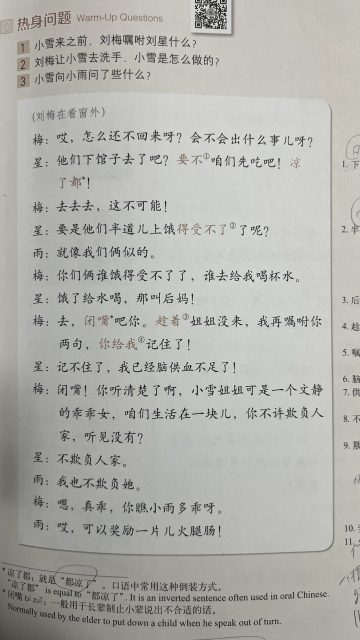 热身问题 Warm-Up Questions
1 小雪来之前，刘梅嘱咐刘星什么？
2 刘梅让小雪去洗手，小雪是怎么做的？
3 小雪向小雨问了些什么？
（刘梅在看窗外）
梅：哎，怎么还不回来呀？会不会出什么事儿呀？
星：他们下馆子去了吧？要不①咱们先吃吧！凉
了都*！
梅：去去去，这不可能！
星：要是他们半道儿上饿得受不了②了呢？
雨：就像我们俩似的。
梅：你们俩谁饿得受不了了，谁去给我喝杯水。
星：饿了给水喝，那叫后妈！
梅：去，闭嘴*吧你。趁着③姐姐没来，我再嘱咐你
两句，你给我④记住了！
星：记不住了，我已经脑供血不足了！
梅：闭嘴！你听清楚了啊，小雪姐姐可是一个文静
的乖乖女，咱们生活在一块儿，你不许欺负人
家，听见没有？
星：不欺负人家。
雨：我也不欺负她。
梅：嗯，真乖，你瞧小雨多乖呀。
雨：哎，可以奖励一片儿火腿肠！
*凉了都：就是“都凉了”。口语中常用这种倒装方式。
“凉了都” is equal to “都凉了”. It is an inverted sentence often used in oral Chinese.
*闭嘴 bì zuǐ：一般用于长辈制止小辈说出不合适的话。
Normally used by the elder to put down a child when he speak out of turn.
1. 下
2. 半
3. 后
4. 趁
5. 嘱
6. 脑
7. 供
8. 不
9. 欺
10.
11.